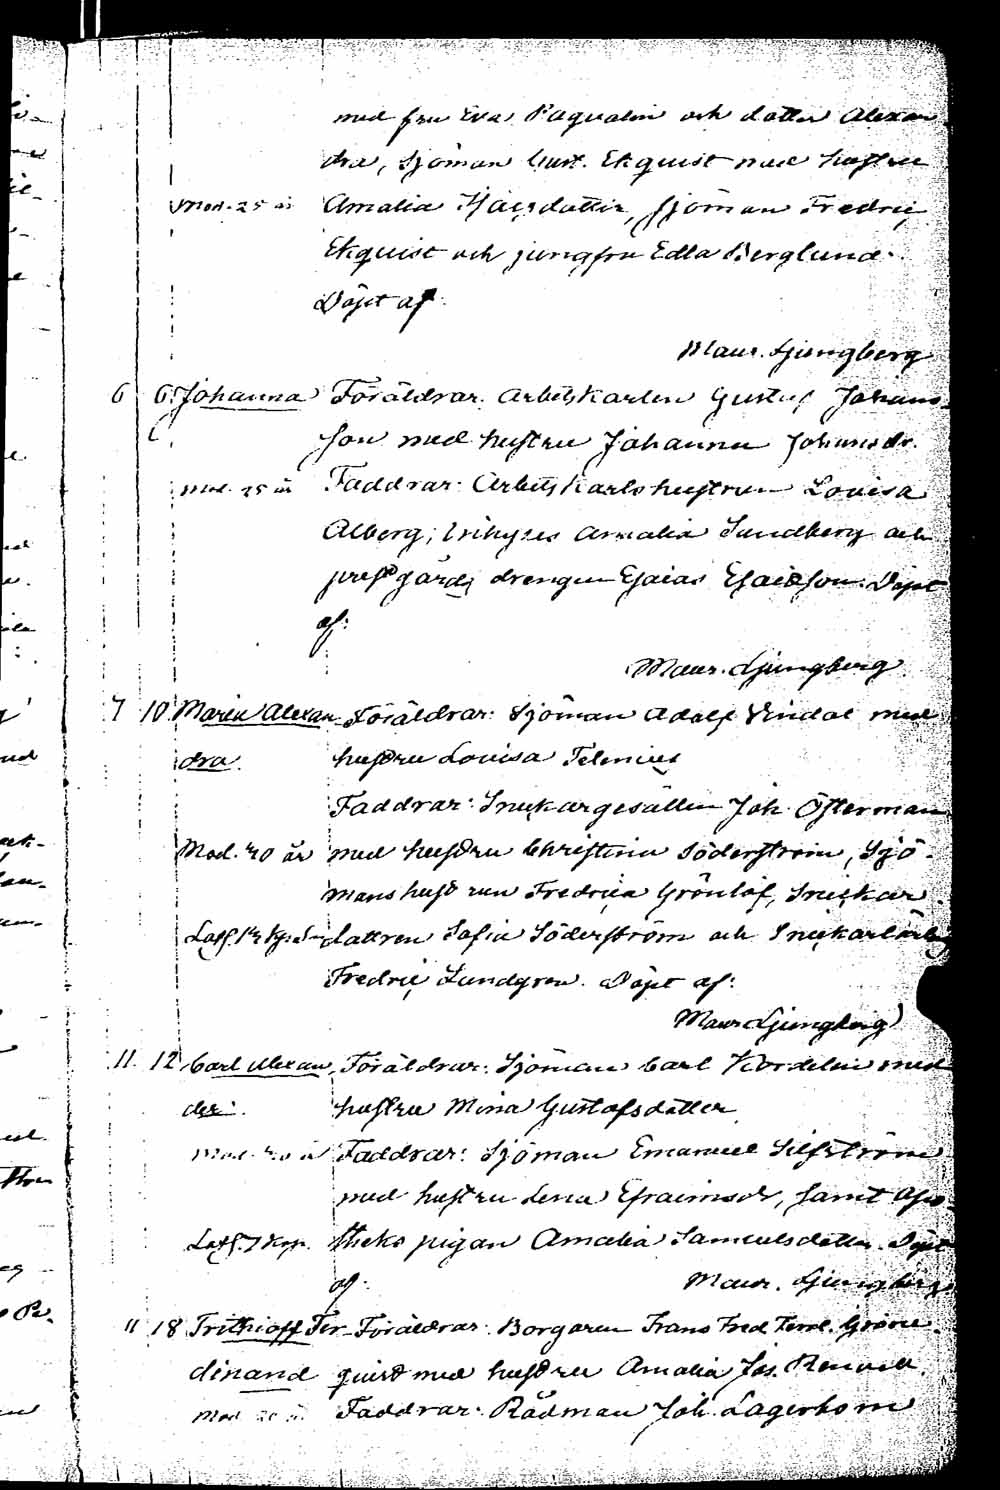 med fru Eva Paqvalin och dotter Alexan-
dra, Sjöman Gust. Ekquist med hustru
Mod. 25 år Amalia Isaksdotter, sjöman Fredric
Ekquist och jungfru Edla Berglund.
Döpt af
Maur. Ljungberg
6 6 Johanna Föräldrar: Arbetskarlen Gustaf Johans-
son med hustru Johanna Johansdr.
Mod. 25 år Faddrar: Arbetskarlshustrun Lovisa
Alberg, Amalia Sundberg och
prestgårds drengen Esaias Esaisson. Döpt
af:
Maur. Ljungberg
7 10 Maria Alexan- Föräldrar: Sjöman Adolf Lindal med
dra. hustru Lovisa Telenius
Faddrar: Snickargesällen Joh. Österman
Mod. 40 år med hustru Christina Söderström, Sjö-
manshustrun Fredrica Grönlöf, Snickar
dattren Sofia Söderström och Snickarlärling
Fredric Lundgren. Döpt af:
Maur. Ljungberg
11. 12 Carl Alexan- Föräldrar: Sjöman Carl Kordelin med
der. hustru Mina Gustafsdotter
Mod. Faddrar: Sjöman Emanuel Silfström
med hustru Lena Efraimsdr, samt Apo-
7 Kop. theks pigan Amalia Samuelsdotter. Döpt
af: Maur. Ljungberg
11 18 Frithioff Fer- Föräldrar: Borgaren Frans Fred. Ferd. Grön-
dinand quist med hustru Amalia Jos. Renvall.
Mod Faddrar: Rådman Joh. Lagerbom